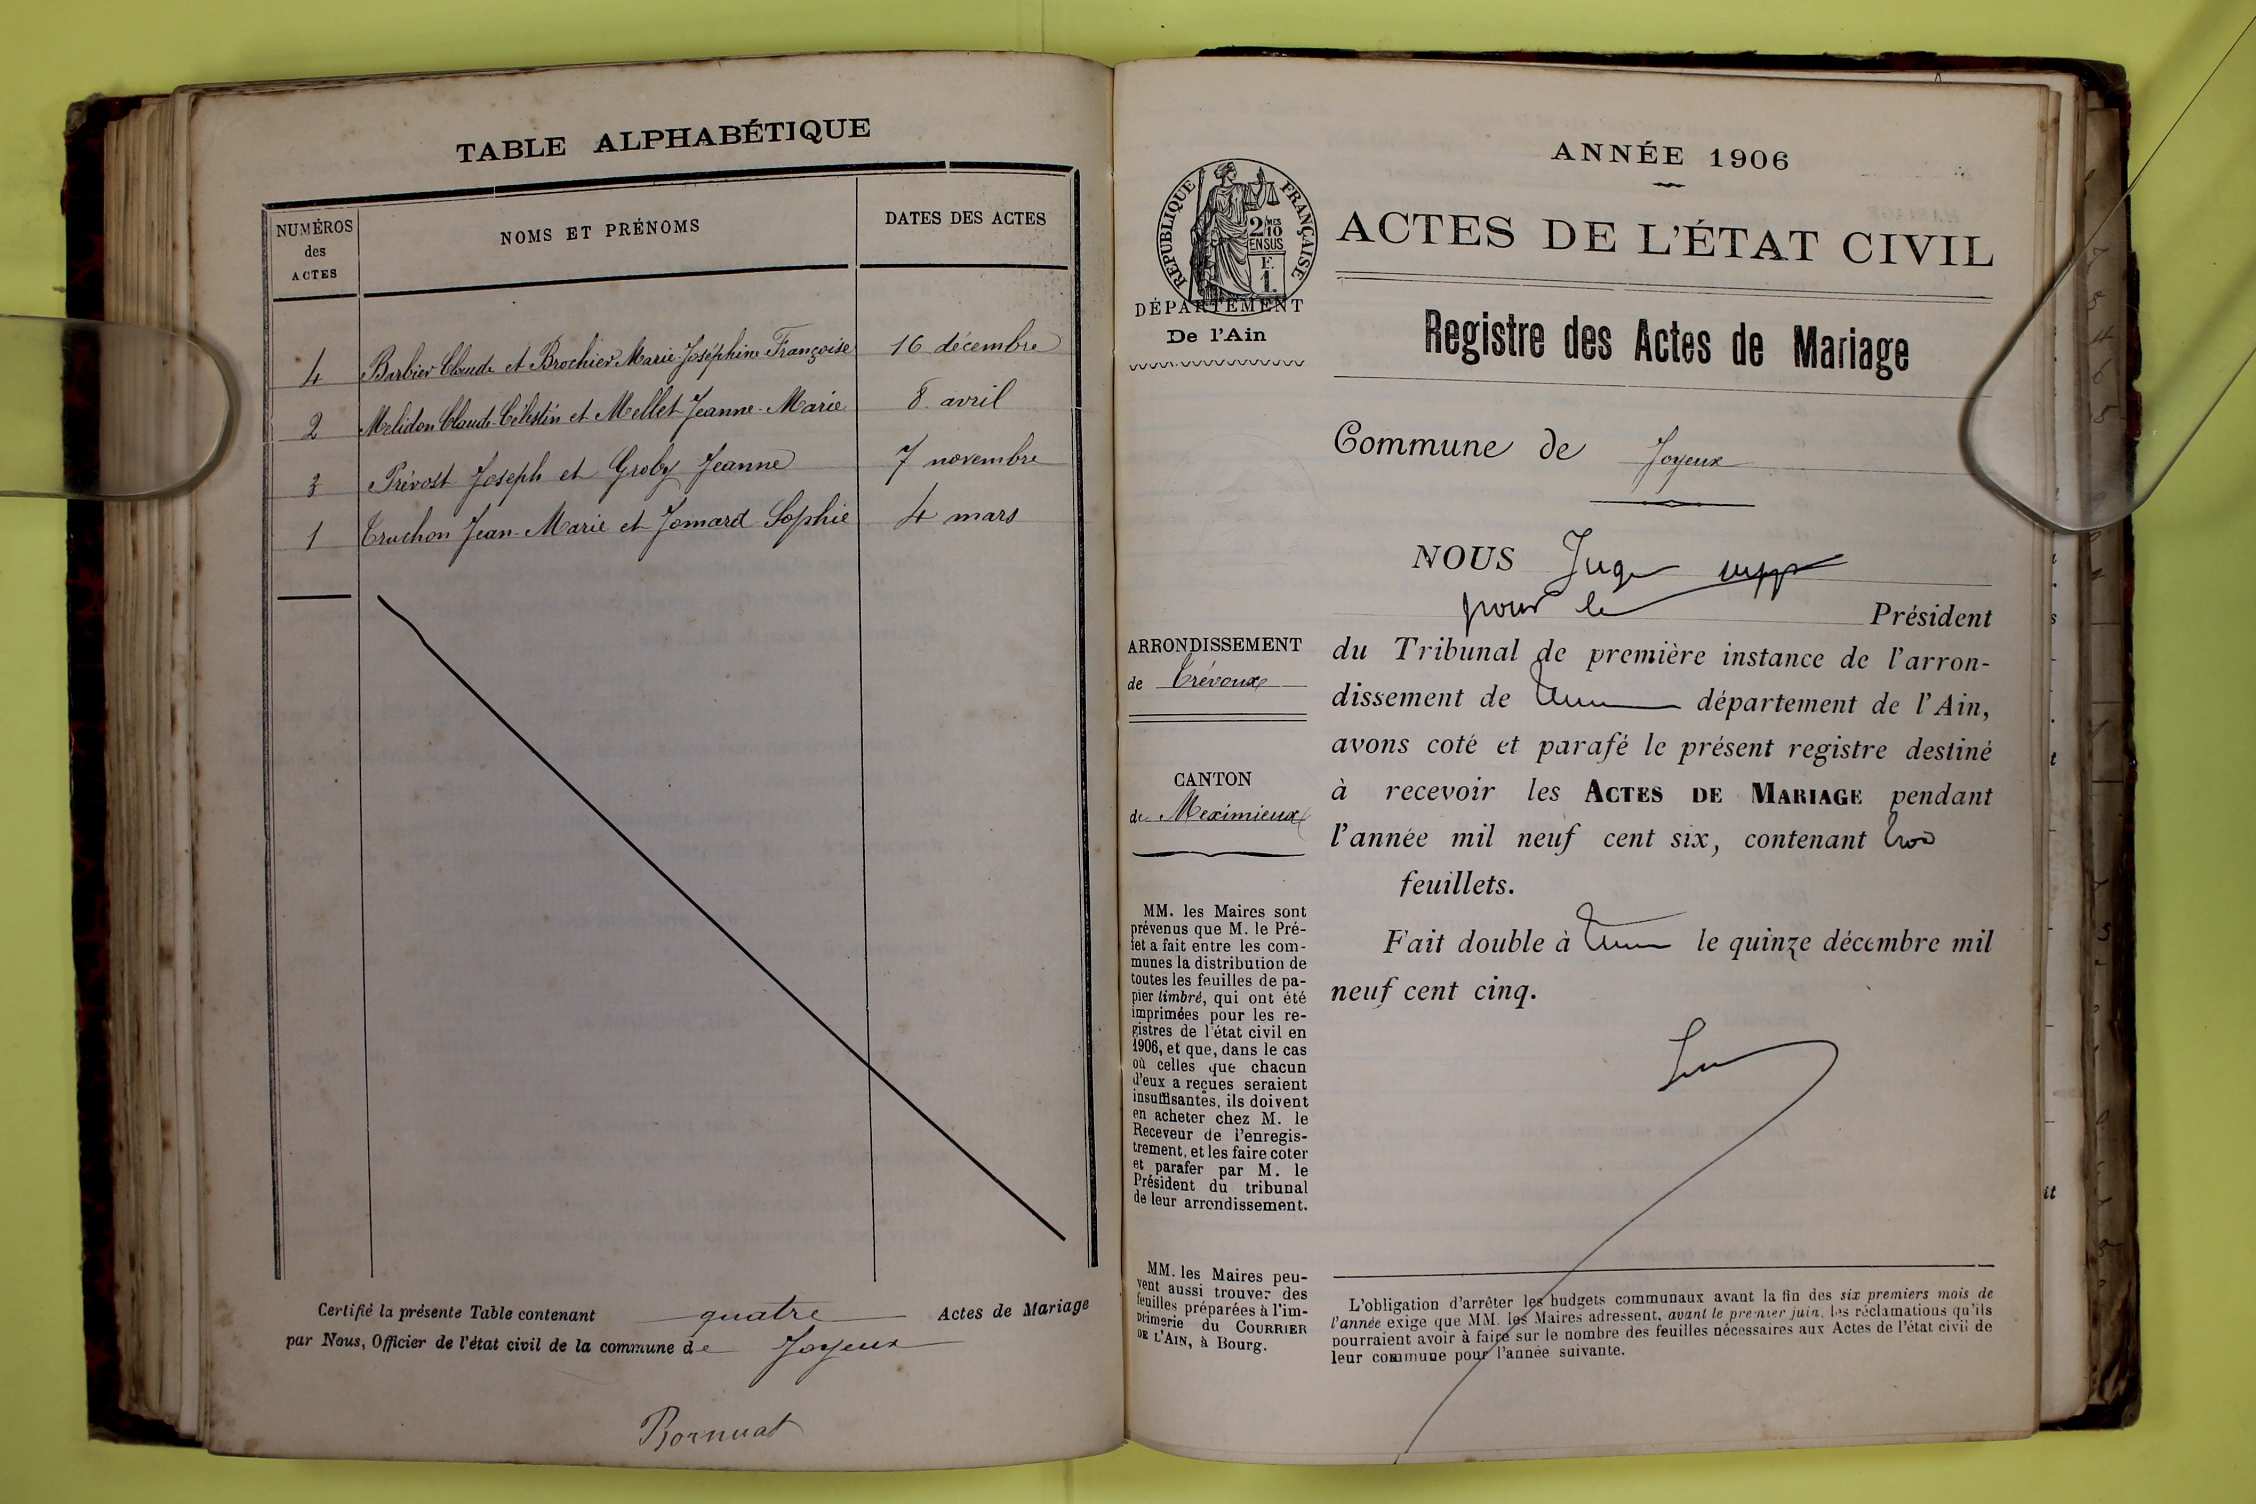 TABLE ALPHABÉTIQUE
NUMÉROS des ACTES
NOMS ET PRÉNOMS
DATES DES ACTES
4 Barbier Claude et Brochier Marie Joséphine Françoise 16 décembre
2 Melidon Claude-Célestin et Mellet Jeanne-Marie 8 avril
3 Prévost Joseph et Groby Jeanne 7 novembre
1 Truchon Jean-Marie et Jomard Sophie 4 mars
Certifié la présente Table contenant quatre Actes de Mariage
par Nous, Officier de l'état civil de la commune de Joyeux
Bornuat
ANNÉE 1906
RÉPUBLIQUE FRANÇAISE
2/10 MES
EN SUS
F.
1.
ACTES DE L'ÉTAT CIVIL
DÉPARTEMENT
De l'Ain
Registre des Actes de Mariage
Commune de Joyeux
NOUS Juge supp
pour le Président
ARRONDISSEMENT
de Trévoux
du Tribunal de première instance de l'arron-
dissement de département de l'Ain,
avons coté et parafé le présent registre destiné
CANTON
de Meximieux
à recevoir les ACTES DE MARIAGE pendant
l'année mil neuf cent six, contenant trois
feuillets.
Fait double à le quinze décembre mil
neuf cent cinq.
MM. les Maires sont
prévenus que M. le Pré-
fet a fait entre les com-
munes la distribution de
toutes les feuilles de pa-
pier timbré, qui ont été
imprimées pour les re-
gistres de l'état civil en
1906, et que, dans le cas
où celles que chacun
d'eux a reçues seraient
insuffisantes, ils doivent
en acheter chez M. le
Receveur de l'enregis-
trement, et les faire coter
et parafer par M. le
Président du tribunal
de leur arrondissement.
MM. les Maires peu-
vent aussi trouver des
feuilles préparées à l'im-
primerie du COURRIER
DE L'AIN, à Bourg.
L'obligation d'arrêter les budgets communaux avant la fin des six premiers mois de
l'année exige que MM. les Maires adressent, avant le premier juin, les réclamations qu'ils
pourraient avoir à faire sur le nombre des feuilles nécessaires aux Actes de l'état civil de
leur commune pour l'année suivante.